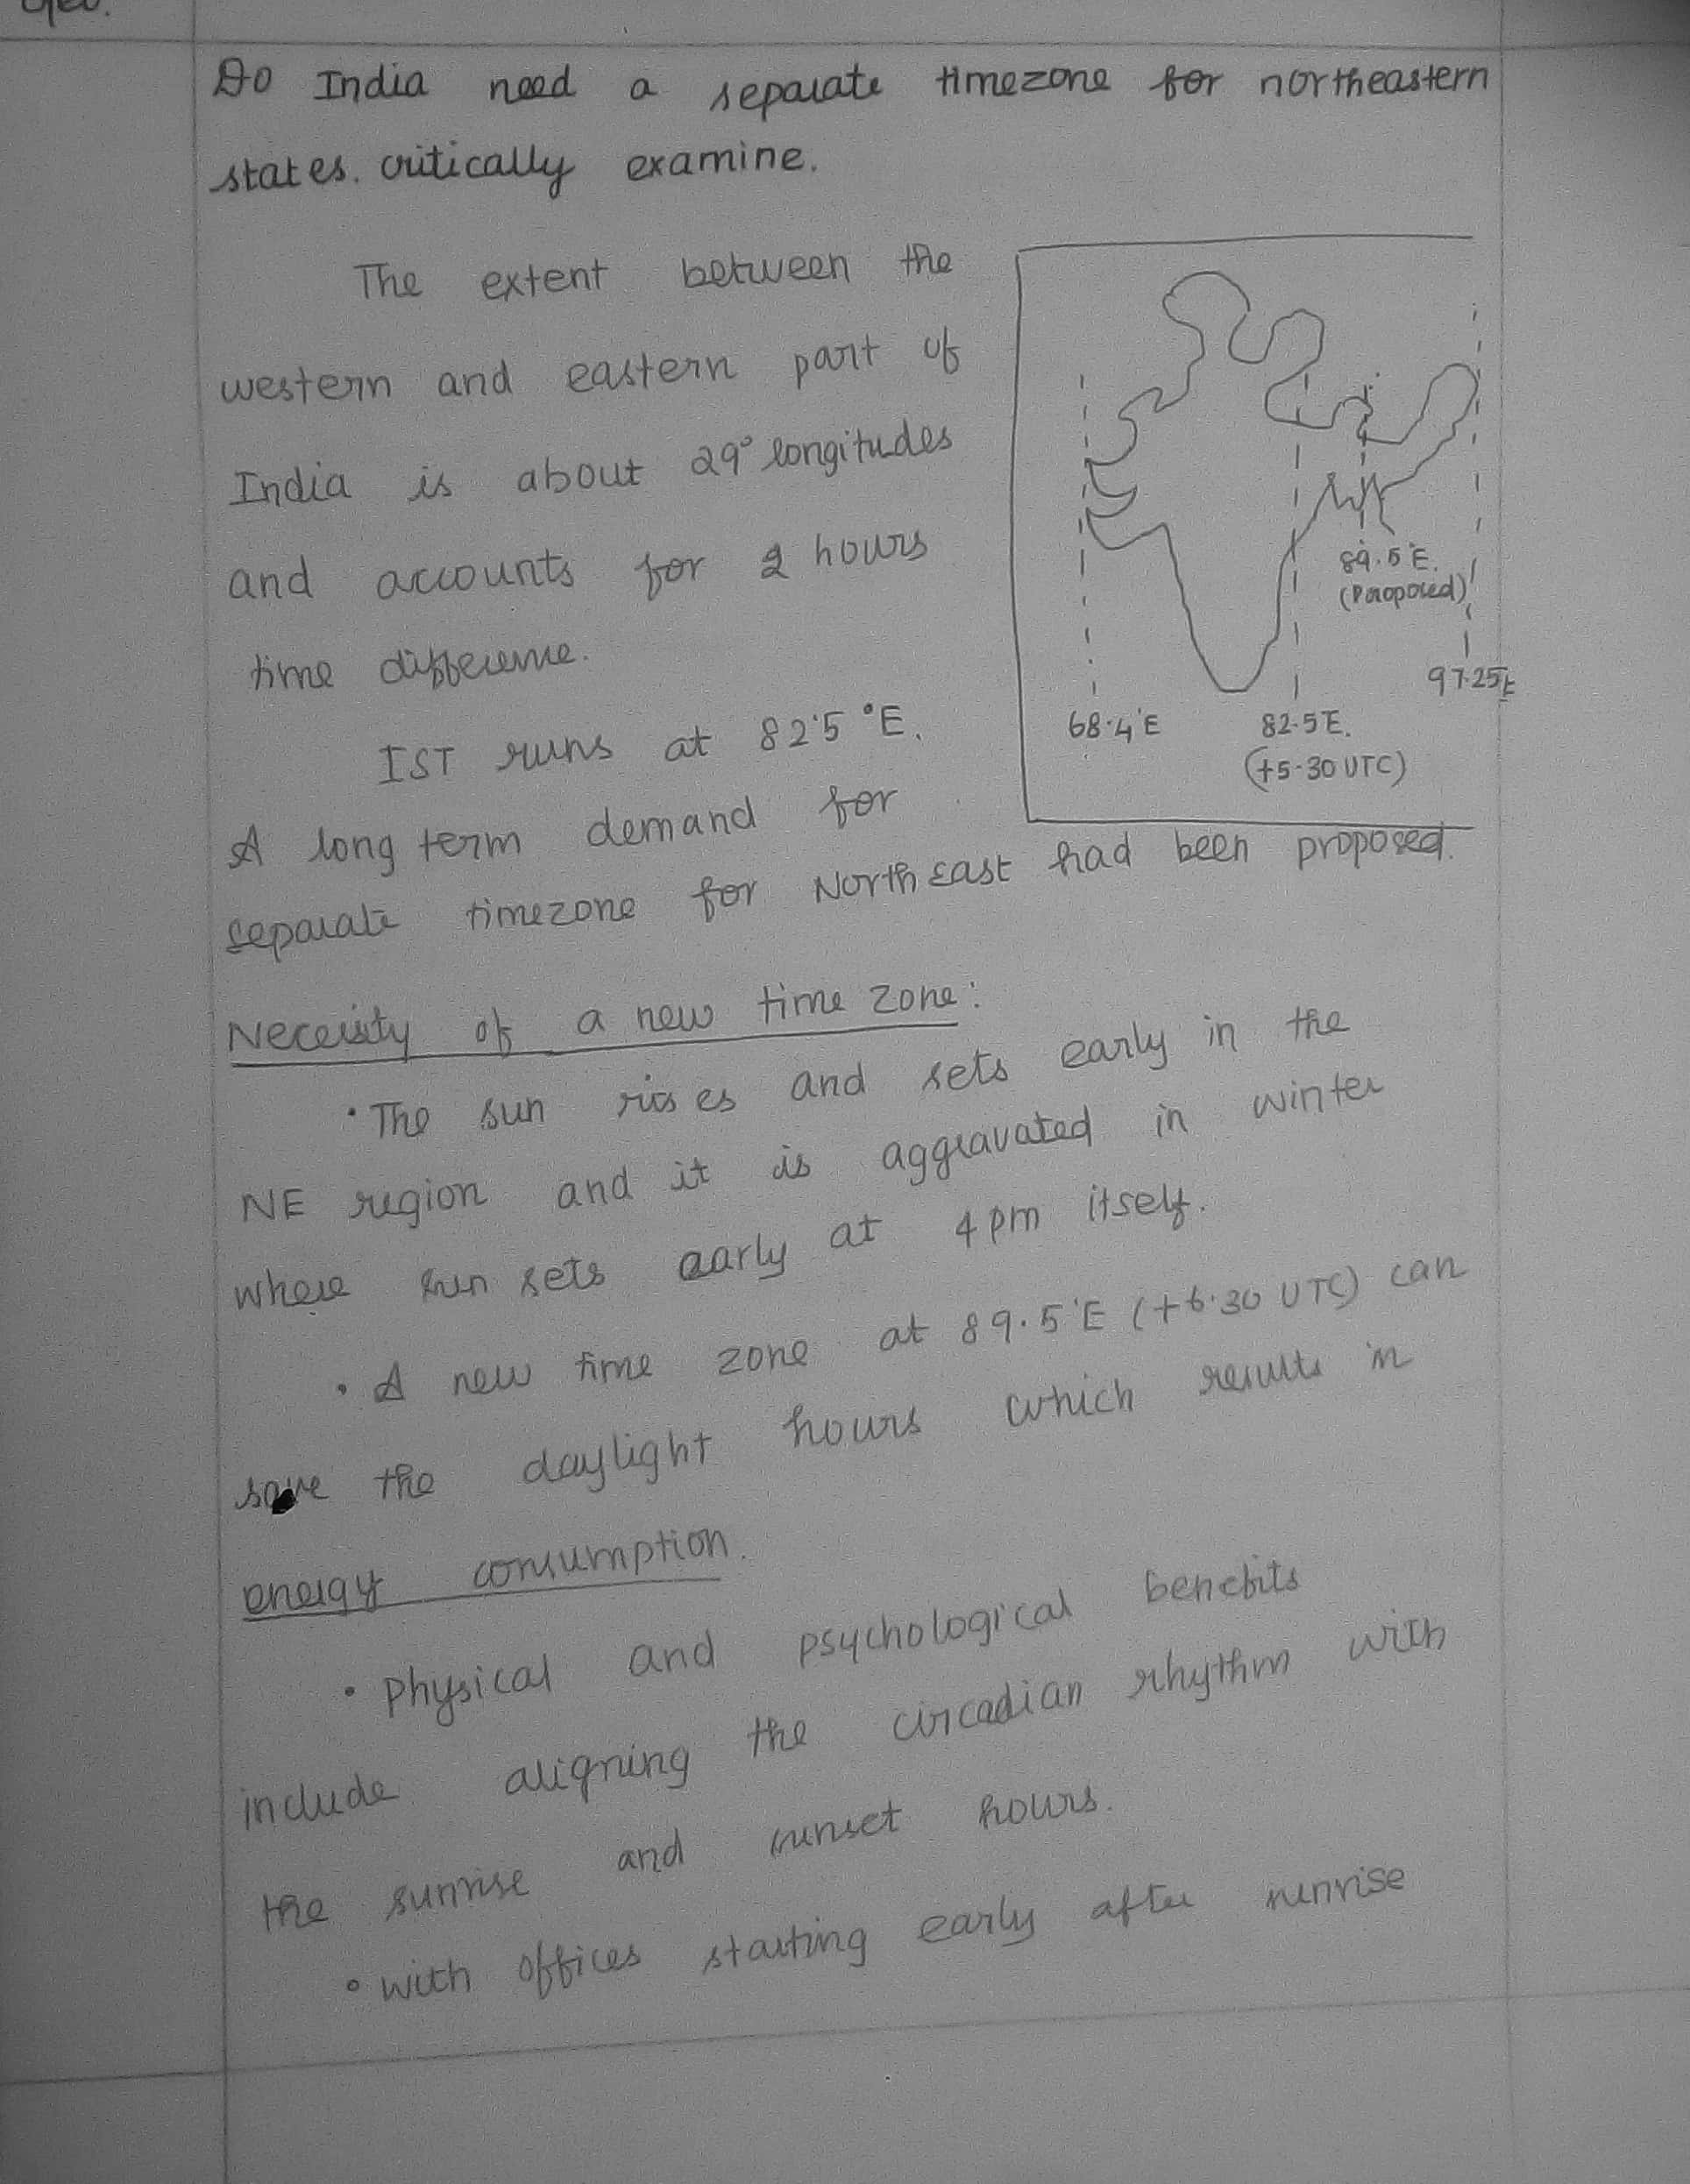 Geo.
Do India need a separate timezone for northeastern
states. critically examine.
The extent between the
western and eastern part of
India is about 29° longitudes
and accounts for 2 hours
time difference.
IST runs at 82.5 °E.
A long term demand for
separate timezone for North East had been proposed.
89.5°E.
(Proposed)
97.25E
68.4°E
82.5E.
(+5.30 UTC)
Necessity of a new time zone:
• The sun rises and sets early in the
NE region and it is aggravated in winter
where sun sets early at 4 pm itself.
• A new time zone at 89.5°E (+6.30 UTC) can
save the daylight hours which results in
energy consumption.
• Physical and psychological benefits
include aligning the circadian rhythm with
the sunrise and sunset hours.
• with offices starting early after sunrise